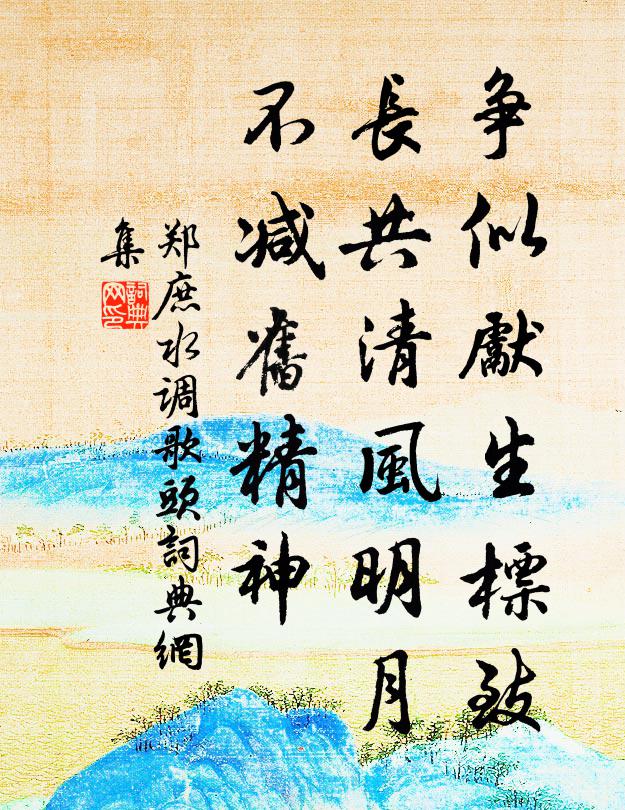 争似獻生標致
長共清風明月
不减舊精神
郑庶水调歌頭詞典網
集
詞典网印